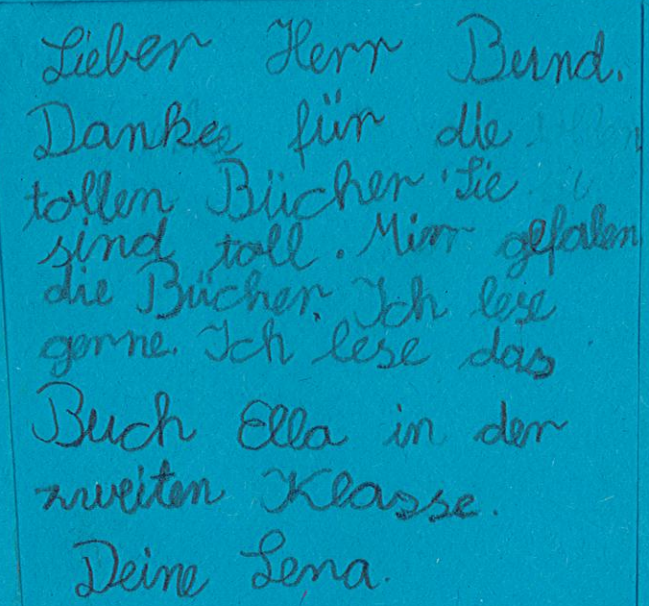 Lieber Herr Bund.
Danke für die
tollen Bücher. Sie
sind toll. Mir gefalen
die Bücher. Ich lese
gerne. Ich lese das
Buch Ella in der
zweiten Klasse.
Deine Lena.